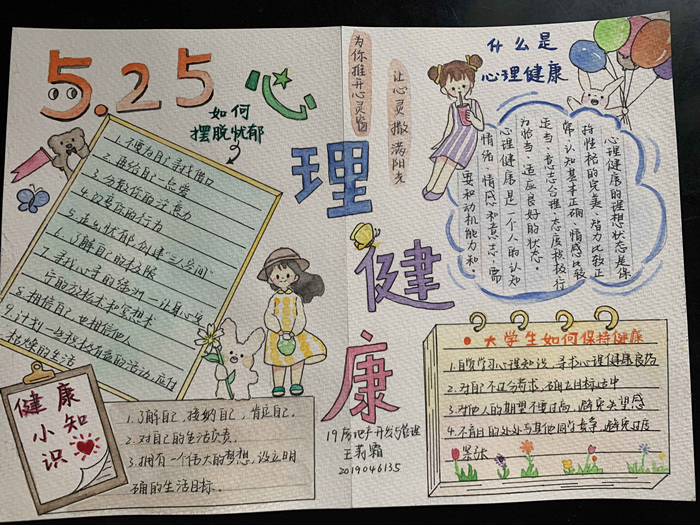 5.25
心
理
健
康
为你推开心灵窗
让心灵撒满阳光
如何
摆脱忧郁
1.不要为自己寻找借口
2.再给自己一点爱
3.分散你的注意力
4.改变你的行为
5.走出忧郁,创建"三人空间"
6.了解自己的极限
7.寻找心灵的绿洲—让身心安
宁的放松术和冥想术
8.相信自己,也相信他人
9.计划一些积极有益的活动,应付
枯燥的生活
什么是
心理健康
心理健康的理想状态是保
持性格的完美、智力比较正
常、认知基本正确、情感比较
适当、意志合理、态度积极、行
为恰当、适应良好的状态。
心理健康是一个人的认知
情绪、情感和意志、需
要和动机、能力和
大学生如何保持健康
1.自觉学习心理知识,寻求心理健康良药
2.对自己不过分苛求,确立目标适中
3.对他人的期望不要过高,避免失望感
4.不盲目的处处与其他同学竞争,避免过度
紧张
健康
小知
识
1.了解自己,接纳自己,肯定自己。
2.对自己的生活负责。
3.拥有一个伟大的梦想,设立明
确的生活目标。
19房地产开发与管理
王莉霜
2019046135